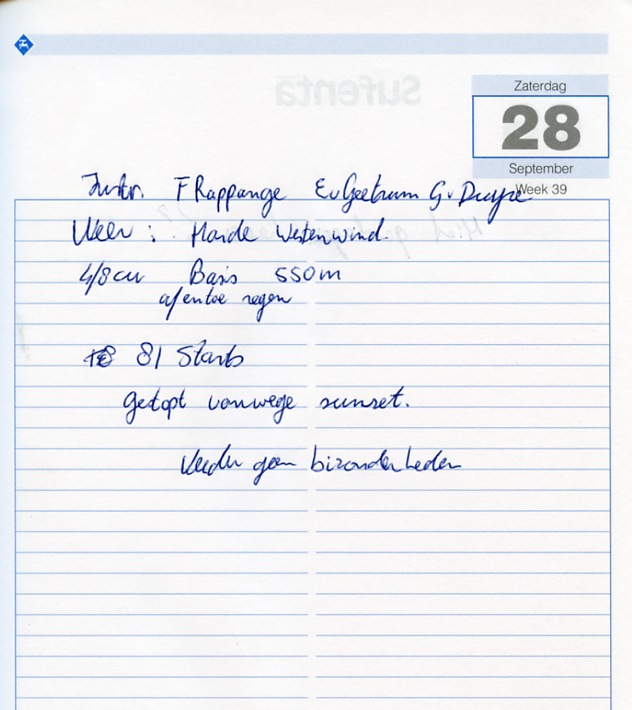 Sufenta
Zaterdag
28
September
Week 39
Instr. F Rappange E v Geetrum G v
Weer : Harde Westenwind.
4/8 cu Basis 550m
af en toe regen
81 Starts
gestopt vanwege sunset.
Verder geen bizonderheden